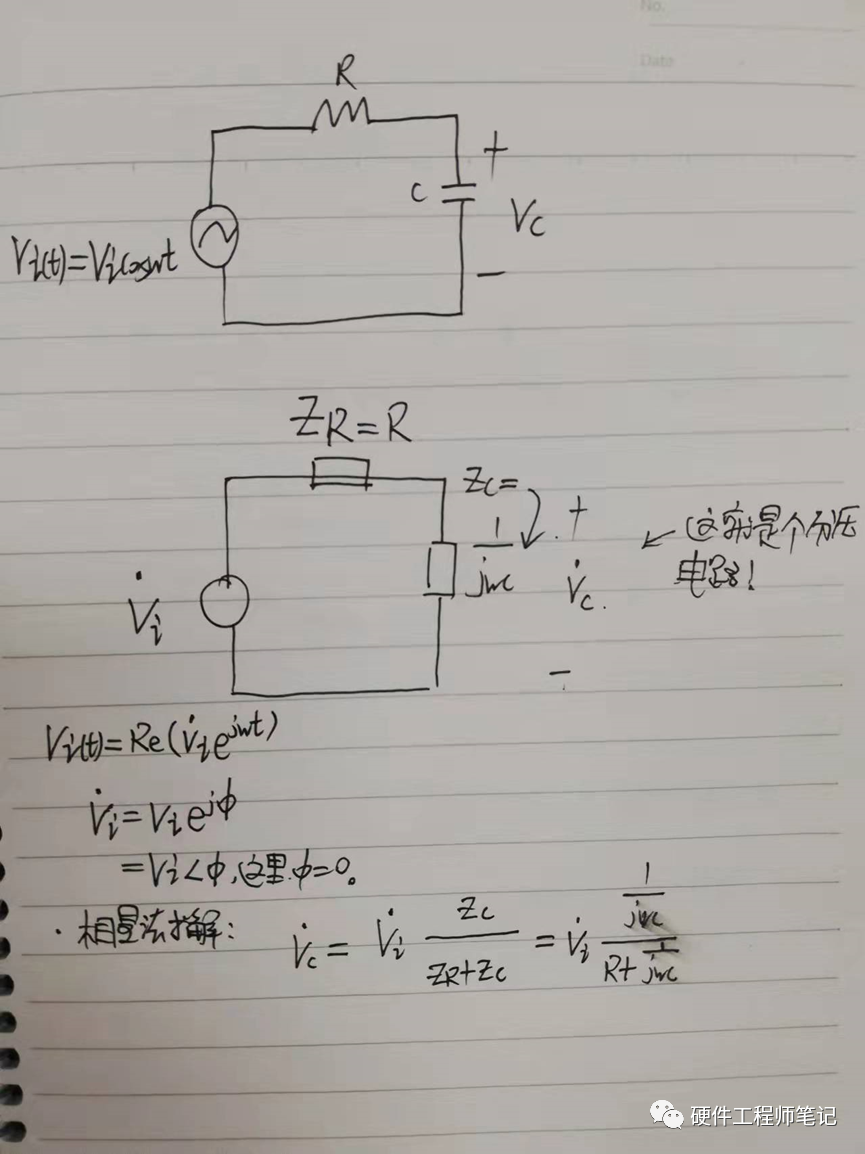 No.
Date
R
C
+
Vc
−
Vi(t)=Vicoswt
ZR=R
Zc=
1/jwc
+
V̇c.
−
← 这实际是个分压
电路!
V̇i
Vi(t)=Re(V̇ie^jwt)
V̇i=Vie^jφ
=Vi∠φ,这里.φ=0。
·相量法求解: V̇c= V̇i Zc/(ZR+Zc) =V̇i (1/jwc)/(R+1/jwc)
硬件工程师笔记